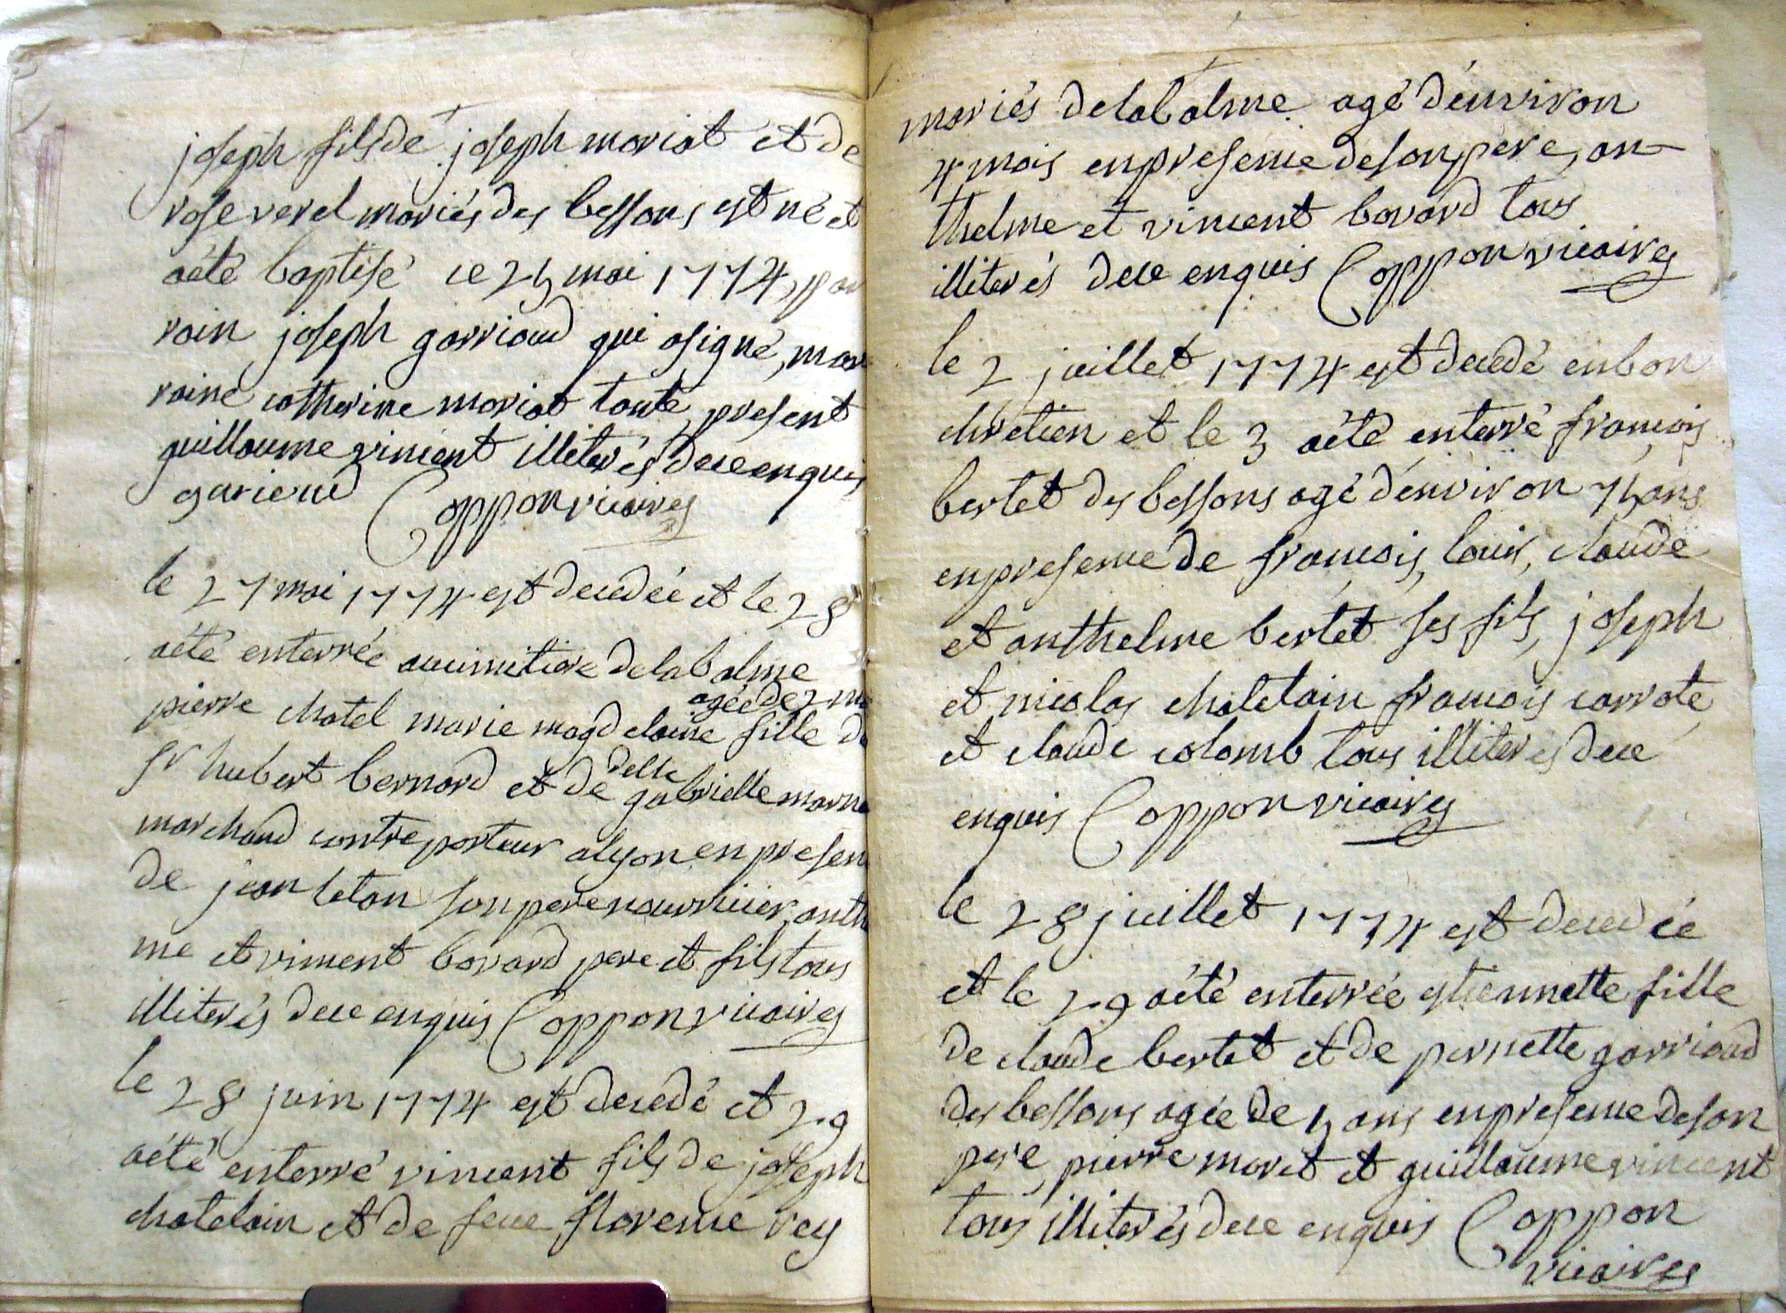 joseph fils de joseph moriat et de
rose verel mariés des bessons est né et
aété baptisé ce 25 mai 1774, par
rain joseph garriaud qui asigné, mar
raine catherine moriat tante, present
guillaume vincent illiterés dece enquis
garieud Coppon vicaires
le 27 mai 1774 est decedée et le 28
aété enterrée aucimetiere delabalme
agée de 2
pierre chatel marie magdelaine fille de
sr hubert bernard et de delle gabrielle
marchand contreporteur alyon en presen
de jean son pere nourricier, anth
me et vincent bovard pere et fils tous
illiterés dece enquis Coppon vicaires
le 28 juin 1774 est decedé et 29
aété enterré vincent fils de joseph
chatelain et de feue florence rey
mariés delabalme agé d'environ
4 mois enpresence desonpere, an
thelme et vincent bovard tous
illiterés dece enquis Coppon vicaires
le 2 juillet 1774 est decedé enbon
chretien et le 3 aété enterré francois
bertet des bessons agé d'environ 75 ans
enpresence de francois, louis, claude
et anthelme bertet ses fils, joseph
et nicolas chatelain francois carrote
et claude colomb tous illiterés dece
enquis Coppon vicaires
le 28 juillet 1774 est decedée
et le 29 aété enterrée estiennette fille
de claude bertet et de pernette garriaud
des bessons agée de 5 ans enpresence deson
pere, pierre moret et guillaume vincent
tous illiterés dece enquis Coppon
vicaires